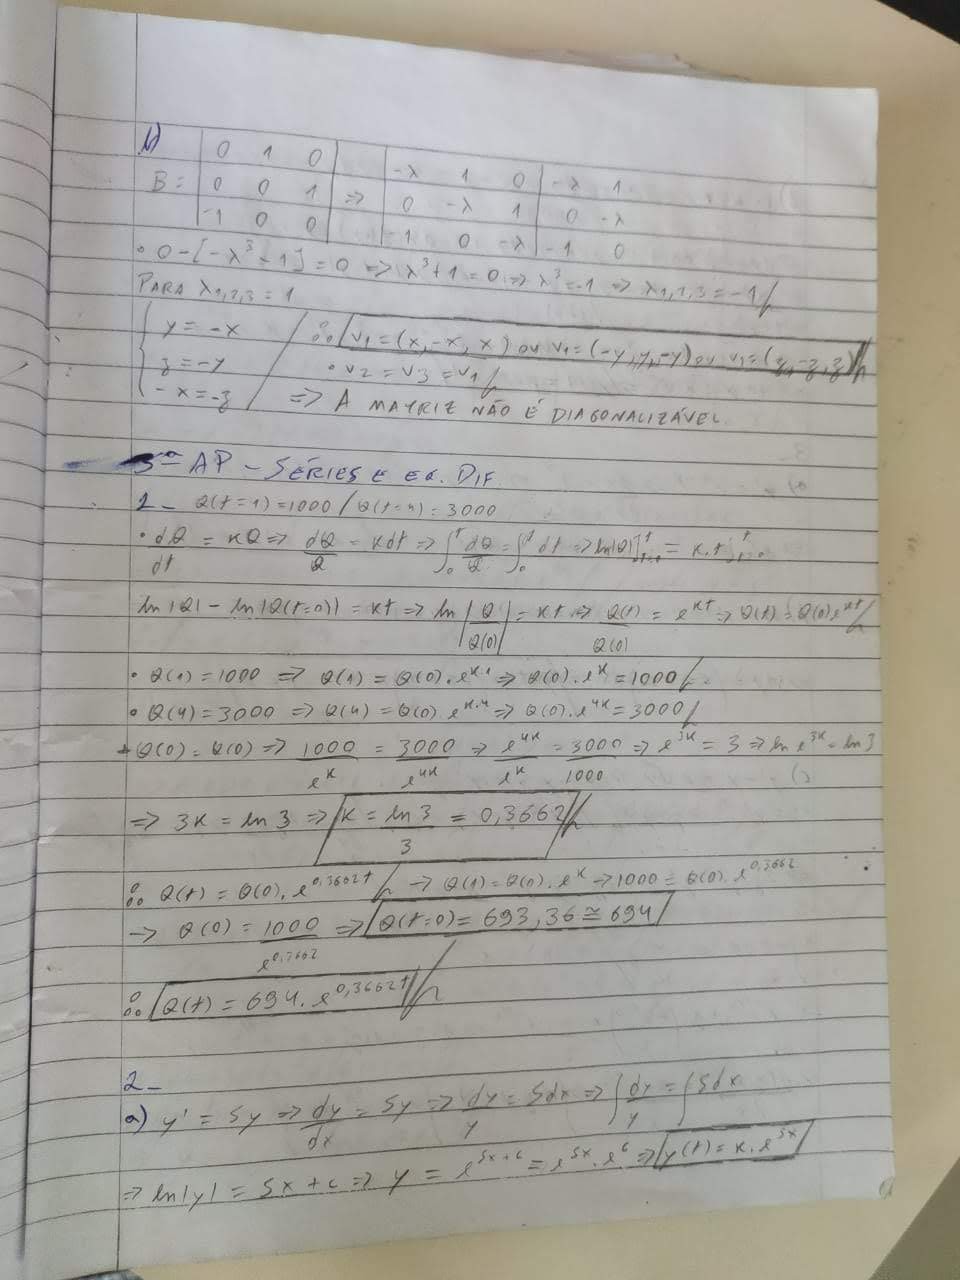 b)
B = | 0 1 0 | | -λ 1 0 | -λ 1
| 0 0 1 | ⇒ | 0 -λ 1 | 0 -λ
| -1 0 0 | | -1 0 -λ | -1 0
• 0-[-λ³-1] = 0 ⇒ λ³+1 = 0 ⇒ λ³=-1 ⇒ λ1,2,3 = -1//
PARA λ1,2,3 = 1
{ y = -x / ∴ v1 = (x,-x, x) ou v1 = (-y, y, -y) ou v1 = (z, -z, z)//
{ z = -y • v2 = v3 = v1//
{ -x = -z ⇒ A MATRIZ NÃO É DIAGONALIZÁVEL
3ª AP - SÉRIES E EQ. DIF.
1- Q(t=1) = 1000 / Q(t=4) = 3000
• dQ/dt = KQ ⇒ dQ/Q = Kdt ⇒ ∫₀ᵗ dQ/Q = ∫₀ᵗ dt ⇒ ln|Q|]ᵗₜ₌₀ = K.t]ᵗₜ₌₀
ln|Q| - ln|Q(t=0)| = Kt ⇒ ln|Q/Q(0)| = Kt ⇒ Q(t)/Q(0) = e^{Kt} ⇒ Q(t) = Q(0)e^{Kt}//
• Q(1) = 1000 ⇒ Q(1) = Q(0).e^{K.1} ⇒ Q(0).e^{K} = 1000//
• Q(4) = 3000 ⇒ Q(4) = Q(0).e^{K.4} ⇒ Q(0).e^{4K} = 3000//
+ Q(0) = Q(0) ⇒ 1000/e^{K} = 3000/e^{4K} ⇒ e^{4K}/e^{K} = 3000/1000 ⇒ e^{3K} = 3 ⇒ ln e^{3K} = ln 3
⇒ 3K = ln 3 ⇒ K = ln 3/3 = 0,3662//
∴ Q(t) = Q(0).e^{0,3662t}// → Q(1) = Q(0).e^{K} → 1000 = Q(0).e^{0,3662}
→ Q(0) = 1000/e^{0,3662} ⇒ Q(t=0) = 693,36 ≅ 694
∴ Q(t) = 694.e^{0,3662t}//
2-
a) y' = 5y ⇒ dy/dx = 5y ⇒ dy/y = 5dx ⇒ ∫dy/y = ∫5dx
⇒ ln|y| = 5x + c ⇒ y = e^{5x+c} = e^{5x}.e^{c} ⇒ y(t) = K.e^{5x}